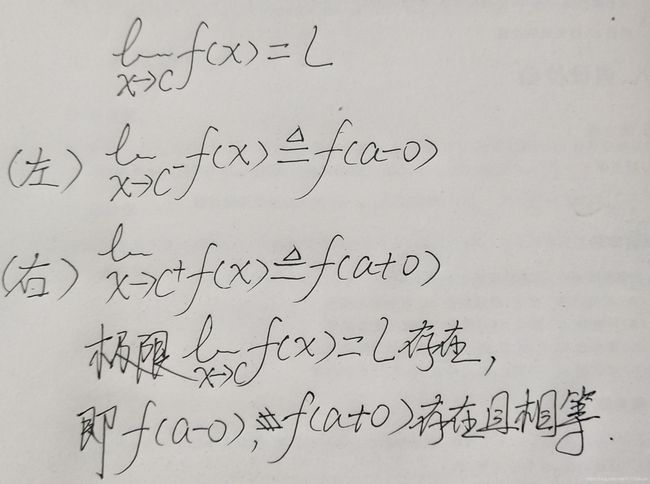 lim x→c f(x)=L
(左) lim x→c⁻ f(x)≜f(a-0)
(右) lim x→c⁺ f(x)≜f(a+0)
极限 lim x→c f(x)=L存在,
即f(a-0),f(a+0)存在且相等.